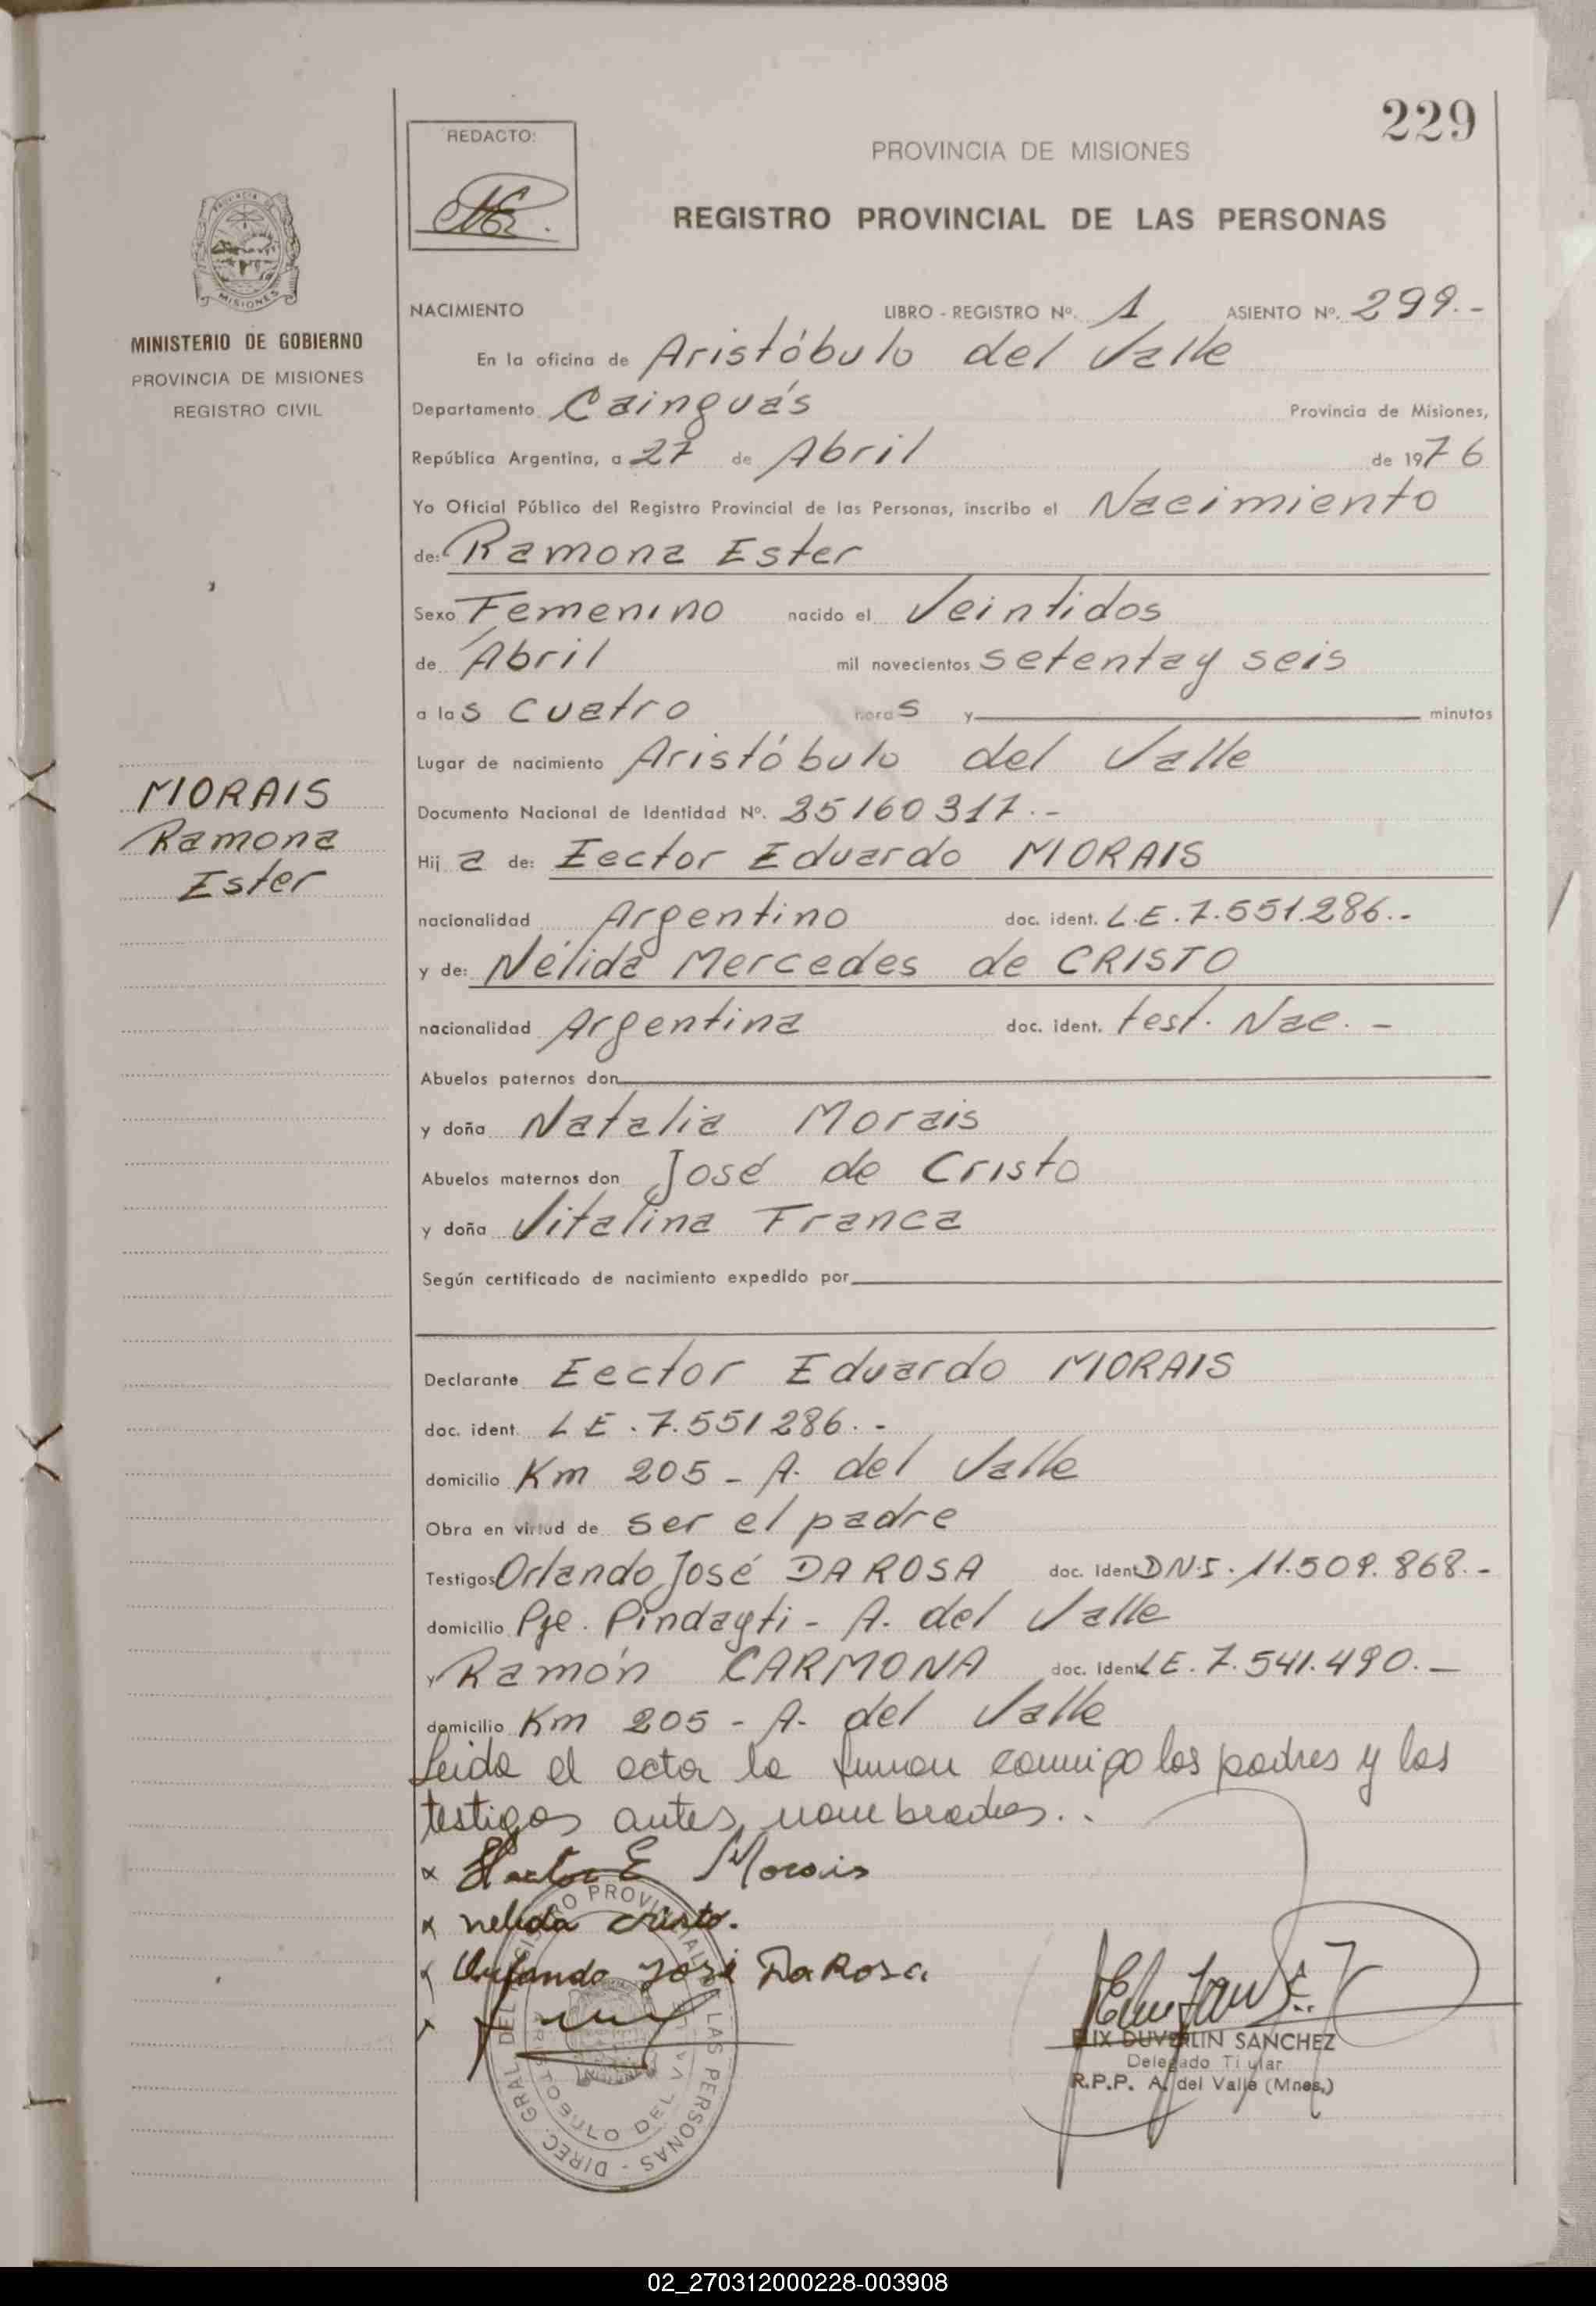 229
REDACTO:
PROVINCIA DE MISIONES
REGISTRO PROVINCIAL DE LAS PERSONAS
MISIONES
MINISTERIO DE GOBIERNO
PROVINCIA DE MISIONES
REGISTRO CIVIL
NACIMIENTO LIBRO - REGISTRO Nº. 1 ASIENTO Nº. 299.-
En la oficina de Aristóbulo del Valle
Departamento Cainguás Provincia de Misiones,
República Argentina, a 27 de Abril de 1976
Yo Oficial Público del Registro Provincial de las Personas, inscribo el Nacimiento
de: Ramona Ester
Sexo Femenino nacido el Veintidos
de Abril mil novecientos setenta y seis
a las cuatro horas y minutos
Lugar de nacimiento Aristóbulo del Valle
Documento Nacional de Identidad Nº. 25160317.-
MORAIS
Ramona
Ester
Hija de: Eector Eduardo MORAIS
nacionalidad Argentino doc. ident. L.E.7.551.286.-
y de: Nélida Mercedes de CRISTO
nacionalidad Argentina doc. ident. test. Nac. -
Abuelos paternos don
y doña Natalia Morais
Abuelos maternos don José de Cristo
y doña Vitalina Franca
Según certificado de nacimiento expedido por
Declarante Eector Eduardo MORAIS
doc. ident. L E . 7.551286. -
domicilio Km 205 - A. del Valle
Obra en virtud de ser el padre
Testigos Orlando José DA ROSA doc. Ident D.N.I. 11.509.868.-
domicilio Pje. Pindayti - A. del Valle
y Ramón CARMONA doc. Ident L E. 7.541.490.-
domicilio Km 205 - A. del Valle
Leida el acta la firman conmigo los padres y los
testigos antes nombrados..
x Hector E Morais
x nelida cristo.
x Orlando José Da Rosa
x
DIREC. GRAL DEL REGISTRO PROVINCIAL DE LAS PERSONAS -
ARISTOBULO DEL VALLE
ELIX DUVERLIN SANCHEZ
Delegado Titular
R.P.P. A. del Valle (Mnes.)
02_270312000228-003908